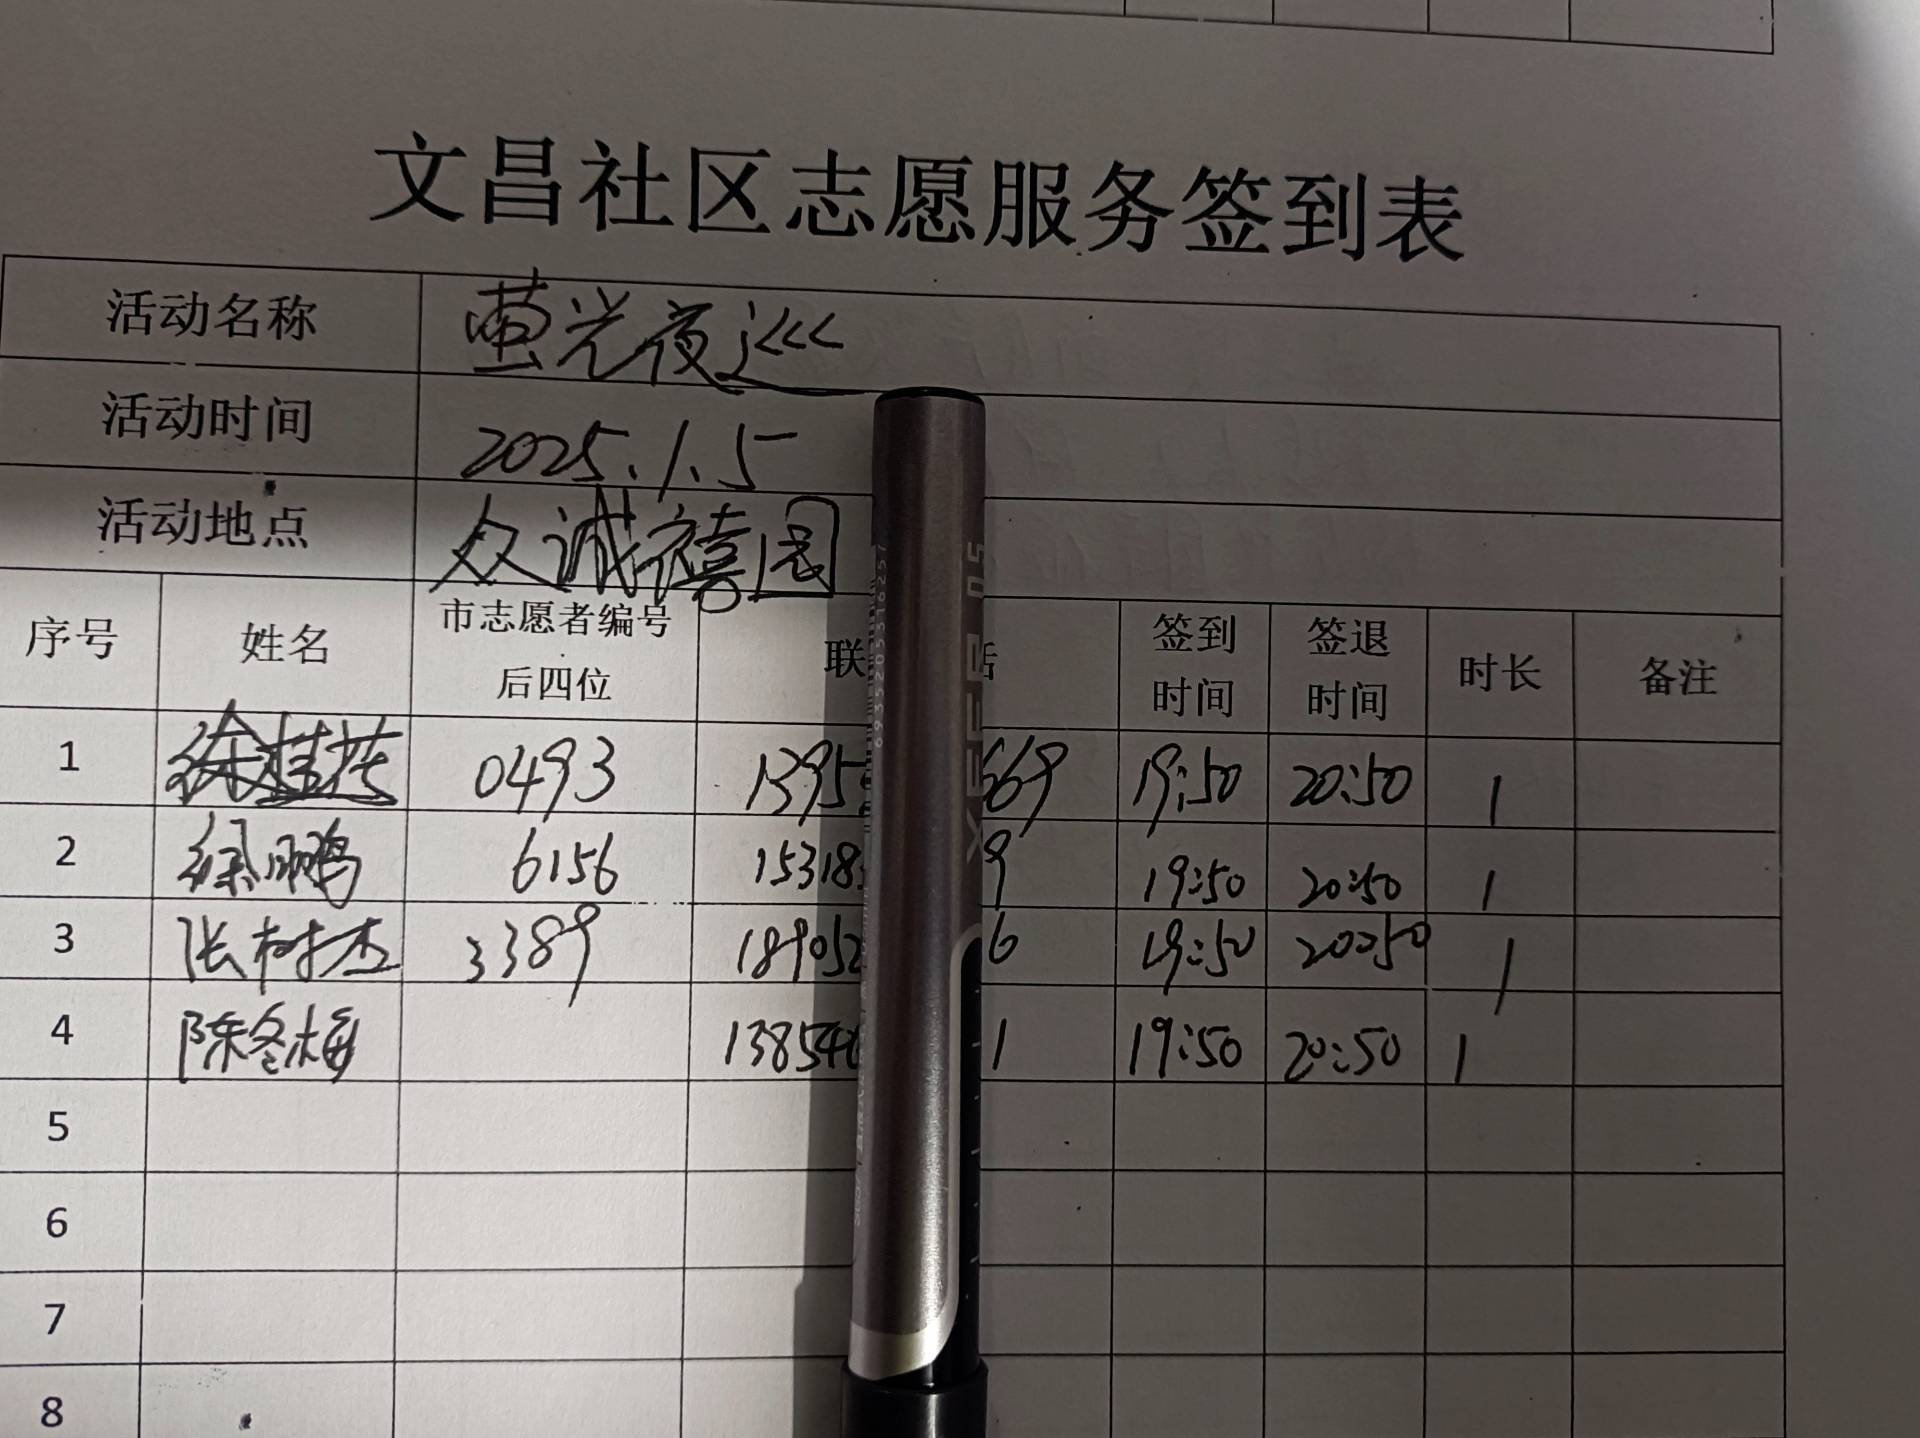 文昌社区志愿服务签到表
活动名称 萤光夜巡
活动时间 2025.1.5
活动地点 众诚禧园
序号 姓名 市志愿者编号后四位 联 话 签到时间 签退时间 时长 备注
1 徐桂芹 0493 1395 669 19:50 20:50 1
2 徐鹏 6156 15318 9 19:50 20:50 1
3 张树杰 3389 189052 6 19:50 20:50 1
4 陈冬梅 13854 1 19:50 20:50 1
5
6
7
8